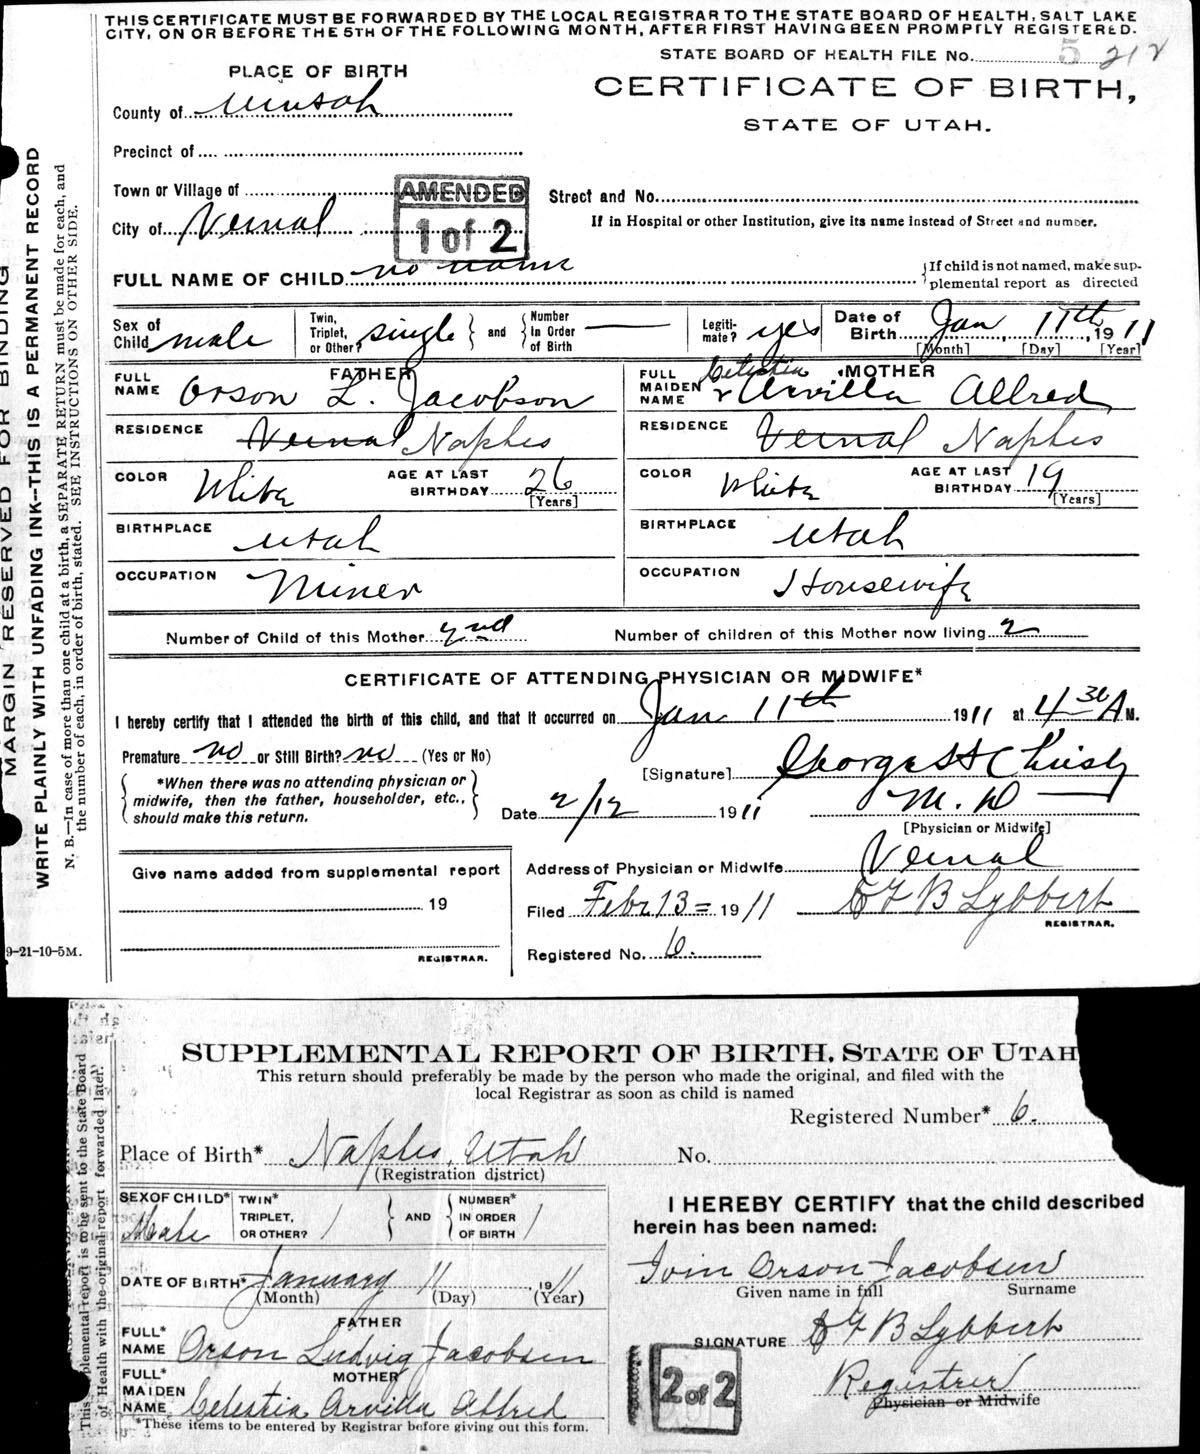 THIS CERTIFICATE MUST BE FORWARDED BY THE LOCAL REGISTRAR TO THE STATE BOARD OF HEALTH, SALT LAKE
CITY, ON OR BEFORE THE 5TH OF THE FOLLOWING MONTH, AFTER FIRST HAVING BEEN PROMPTLY REGISTERED.
STATE BOARD OF HEALTH FILE No. 5 212
PLACE OF BIRTH
CERTIFICATE OF BIRTH,
STATE OF UTAH.
County of
Precinct of
Town or Village of
Street and No.
AMENDED
1 of 2
City of Vernal
If in Hospital or other Institution, give its name instead of Street and number.
FULL NAME OF CHILD no name
If child is not named, make sup-
plemental report as directed
Sex of Child male
Twin, Triplet, or Other? single
and
Number In Order of Birth —
Legiti-mate? yes
Date of Birth Jan 11th, 1911
[Month] [Day] [Year]
FATHER
FULL NAME Orson L. Jacobson
RESIDENCE Vernal Naples
COLOR White
AGE AT LAST BIRTHDAY 26
[Years]
BIRTHPLACE Utah
OCCUPATION Miner
MOTHER
FULL MAIDEN NAME Celestia Arvilla Allred
RESIDENCE Vernal Naples
COLOR White
AGE AT LAST BIRTHDAY 19
[Years]
BIRTHPLACE Utah
OCCUPATION Housewife
Number of Child of this Mother 2nd
Number of children of this Mother now living 2
CERTIFICATE OF ATTENDING PHYSICIAN OR MIDWIFE*
I hereby certify that I attended the birth of this child, and that it occurred on Jan 11th 1911 at 4 30 A M.
Premature no or Still Birth? no (Yes or No)
*When there was no attending physician or
midwife, then the father, householder, etc.,
should make this return.
[Signature] George H Christy
M. D
Date 2/12 1911
[Physician or Midwife]
Give name added from supplemental report
19
REGISTRAR.
Address of Physician or Midwife Vernal
Filed Feb. 13 = 1911 B Lybbert
REGISTRAR.
Registered No. 6.
MARGIN RESERVED FOR BINDING
WRITE PLAINLY WITH UNFADING INK--THIS IS A PERMANENT RECORD
N. B.—In case of more than one child at a birth, a SEPARATE RETURN must be made for each, and
the number of each, in order of birth, stated. SEE INSTRUCTIONS ON OTHER SIDE.
9-21-10-5M.
SUPPLEMENTAL REPORT OF BIRTH, STATE OF UTAH
This return should preferably be made by the person who made the original, and filed with the
local Registrar as soon as child is named
Registered Number* 6.
Place of Birth* Naples, Utah No.
(Registration district)
SEX OF CHILD* Male
TWIN* TRIPLET, OR OTHER? /
AND
NUMBER* IN ORDER OF BIRTH /
DATE OF BIRTH* January 11 1911
(Month) (Day) (Year)
FATHER
FULL* NAME Orson Ludvig Jacobsen
MOTHER
FULL* MAIDEN NAME Celestia Arvilla Allred
*These items to be entered by Registrar before giving out this form.
I HEREBY CERTIFY that the child described
herein has been named:
Ivin Orson Jacobsen
Given name in full Surname
SIGNATURE B Lybbert
Registrer
Physician or Midwife
2 of 2
This plemental report is to be sent to the State Board
of Health with the original report forwarded later.